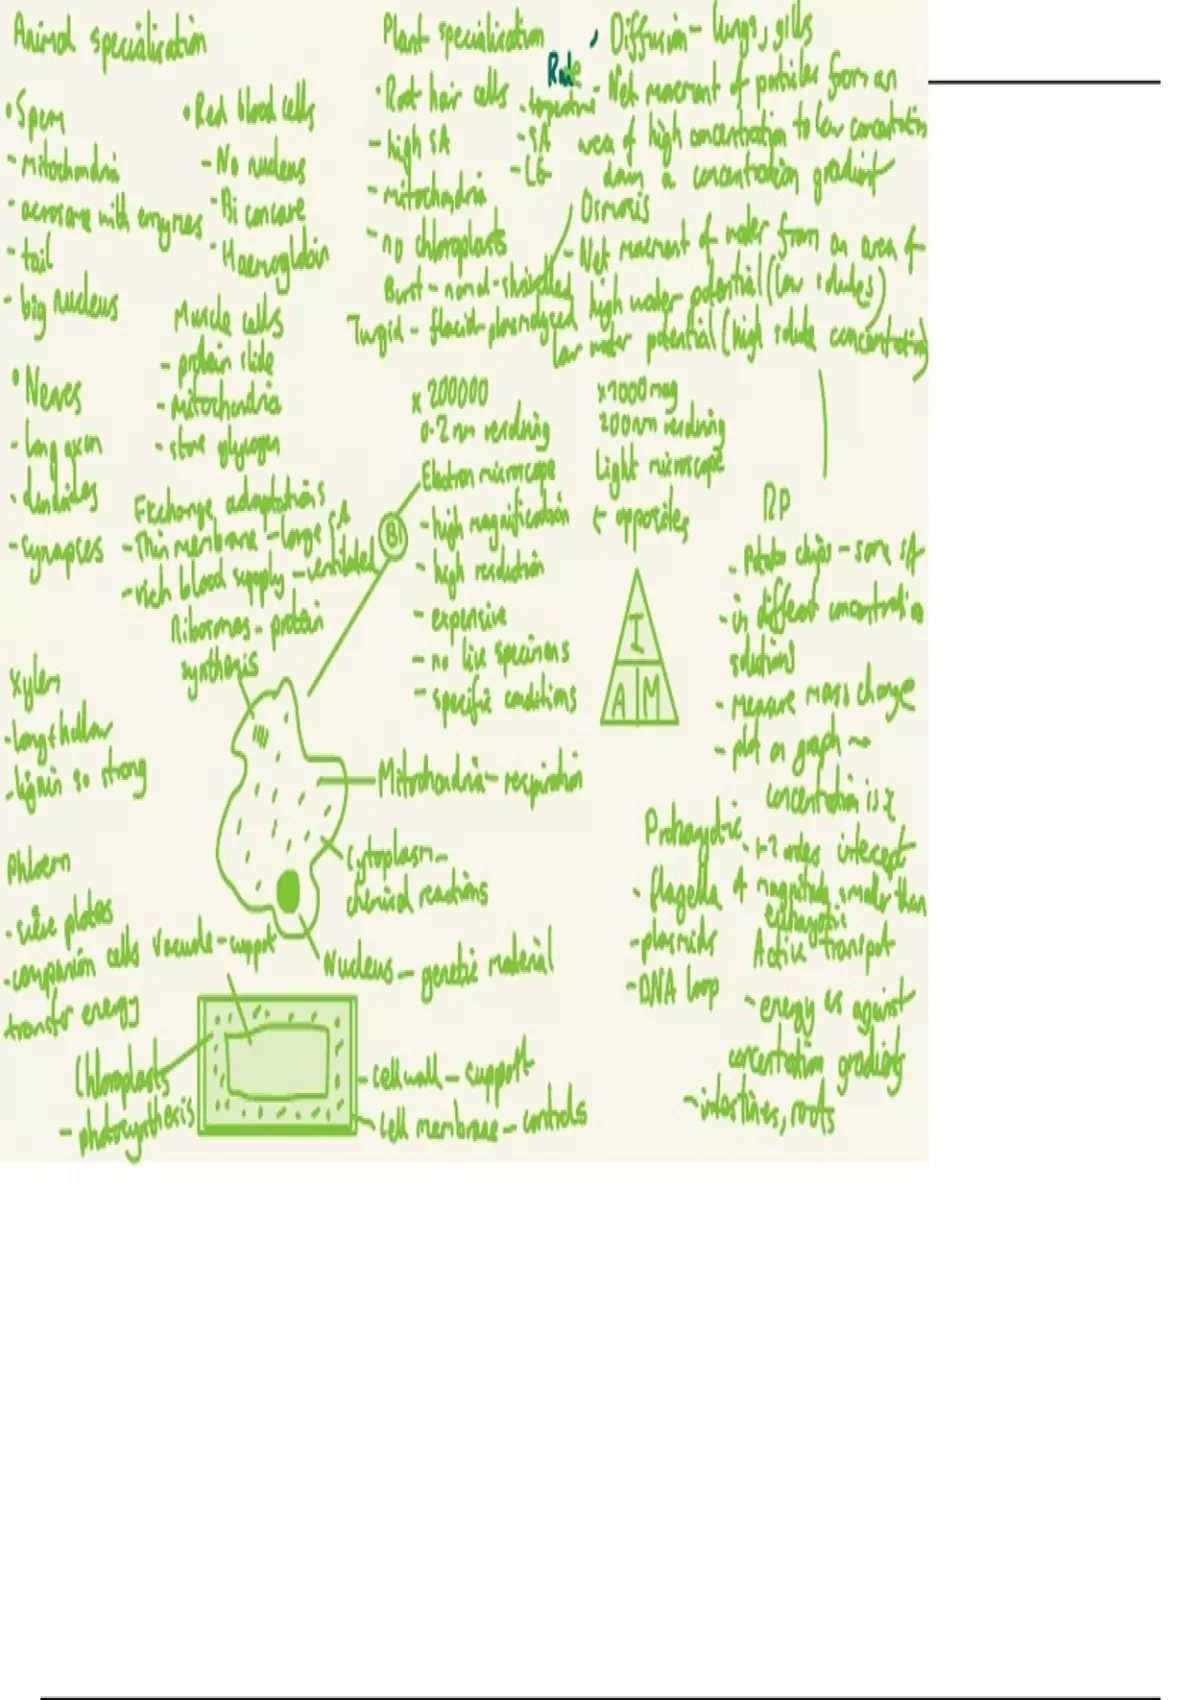 Animal specialisation
• Sperm
- Mitochondria
- acrosome with enzymes
- tail
- big nucleus
• Red blood cells
- No nucleus
- Bi concave
- Haemoglobin
• Nerves
- long axon
- dendrites
- synapses
Muscle cells
- protein slide
- mitochondria
- store glycogen
Exchange adaptations
- Thin membrane - large SA
- rich blood supply - ventilated
Plant specialisation
• Root hair cells
- high SA
- mitochondria
- no chloroplasts
Burst - normal - shrivelled
Turgid - flacid - plasmolysed
Rate
- temperature
- SA
- CG
Diffusion - lungs, gills
- Net movement of particles from an
area of high concentration to low concentration
down a concentration gradient
Osmosis
- Net movement of water from an area of
high water potential (low solutes)
low water potential (high solute concentration)
x 200000
0.2nm resolving
Electron microscope
- high magnification
- high resolution
- expensive
- no live specimens
- specific conditions
x 2000 mag
200nm resolving
Light microscope
← opposites
B1
I
A M
RP
- Potato chips - same SA
- in different concentration
solutions
- measure mass change
- plot on graph
concentration is x
intercept
Ribosomes - protein
synthesis
Mitochondria - respiration
Cytoplasm -
chemical reactions
Nucleus - genetic material
Xylem
- long + hollow
- lignin so strong
Phloem
- sieve plates
- companion cells
transfer energy
Vacuole - support
Chloroplasts
- photosynthesis
- cell wall - support
cell membrane - controls
Prokaryotic
- 1-2 orders
of magnitude smaller than
eukaryotic
- flagella
- plasmids
- DNA loop
Active transport
- energy as against
concentration gradient
- intestines, roots